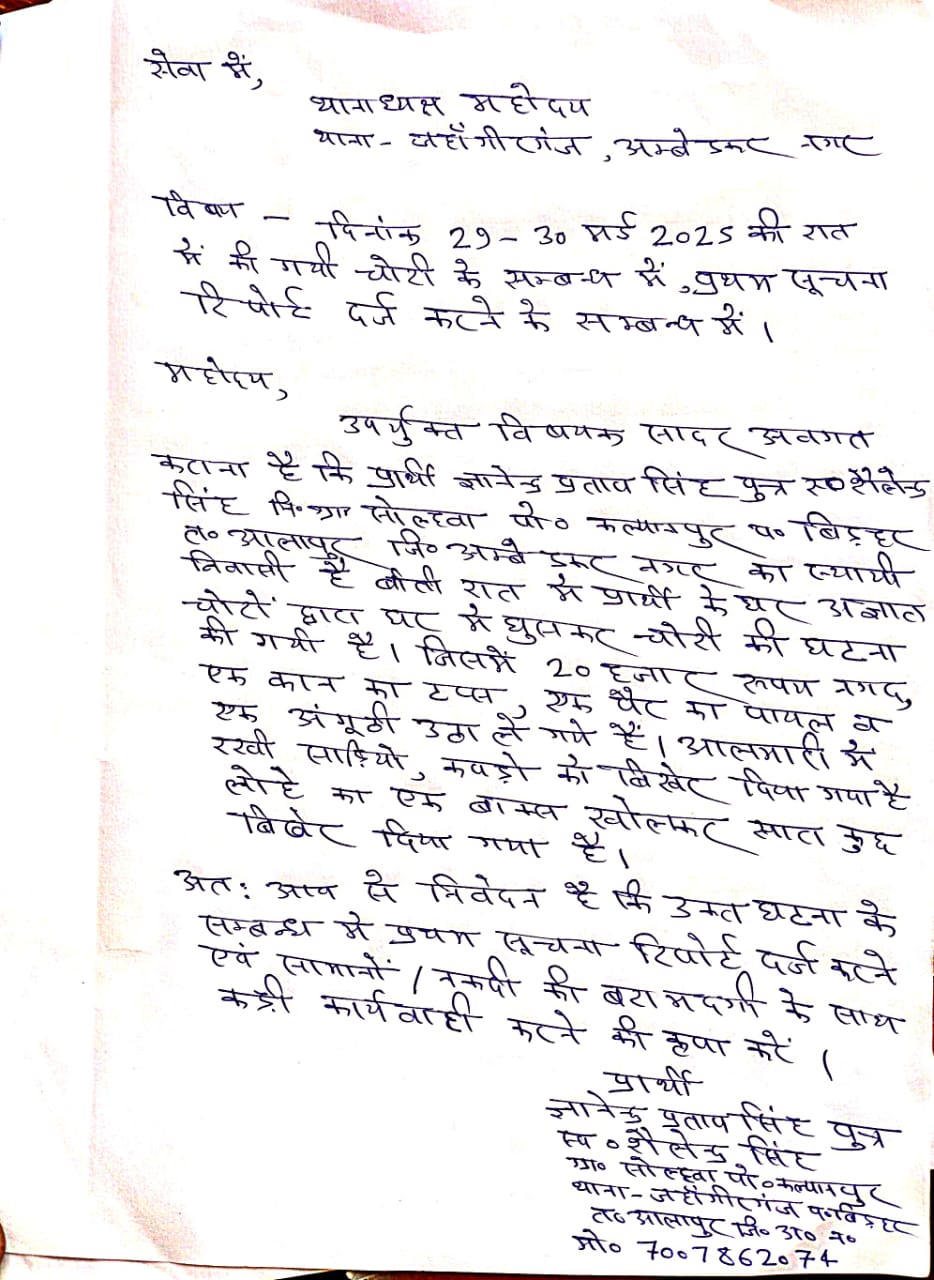 सेवा में,
थानाध्यक्ष महोदय
थाना - जहाँगीरगंज, अम्बेडकर नगर
विषय - दिनांक 29-30 मई 2025 की रात
में की गयी चोरी के सम्बन्ध में, प्रथम सूचना
रिपोर्ट दर्ज करने के सम्बन्ध में।
महोदय,
उपर्युक्त विषयक सादर अवगत
कराना है कि प्रार्थी ज्ञानेन्द्र प्रताप सिंह पुत्र स्व० शैलेन्द्र
सिंह नि० ग्रा० सोल्हवा पो० कल्यानपुर प० बिड़हर
त० आलापुर जि० अम्बेडकर नगर का स्थायी
निवासी है बीती रात में प्रार्थी के घर अज्ञात
चोरों द्वारा घर में घुसकर चोरी की घटना
की गयी है। जिसमें 20 हजार रूपय नगद,
एक कान का टप्स, एक पैर का पायल व
एक अंगूठी उठा ले गये हैं। आलमारी में
रखी साड़ियो, कपड़ो को बिखेर दिया गया है
लोहे का एक बाक्स खोलकर सारा कुछ
बिखेर दिया गया है।
अतः आप से निवेदन है कि उक्त घटना के
सम्बन्ध मे प्रथम सूचना रिपोर्ट दर्ज करने
एवं सामानों / नकदी की बरामदगी के साथ
कड़ी कार्यवाही करने की कृपा करें।
प्रार्थी
ज्ञानेन्द्र प्रताप सिंह पुत्र
स्व० शैलेन्द्र सिंह
ग्रा० सोल्हवा पो० कल्यानपुर
थाना - जहाँगीरगंज प० बिड़हर
त० आलापुर जि० अ० न०
मो० 7007862074